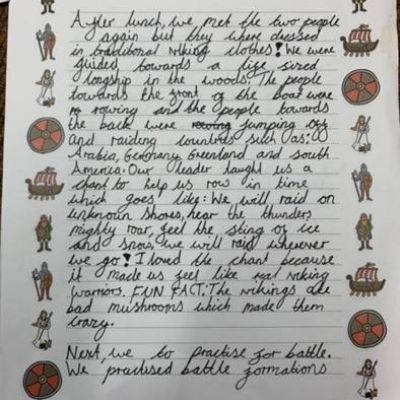 After lunch, we, met the two people
again but they where dressed
in traditional viking clothes! We were
guided towards a life sized
longship in the woods. The people
towards the front of the boat were
rowing and the people towards
the back were rowing jumping off
and raiding countres such as:
Arabia, Germany Greenland and south
America. Our leader taught us a
chant to help us row in time
which goes like: We will raid on
unknown shores, hear the thunders
mighty roar, feel the sting of ice
and snow, we will raid wherever
we go! I loved the chant because
it made us feel like real viking
warriors. FUN FACT: The vikings ate
bad mushrooms which made them
crazy.
Next, we to practise for battle.
We practised battle formations